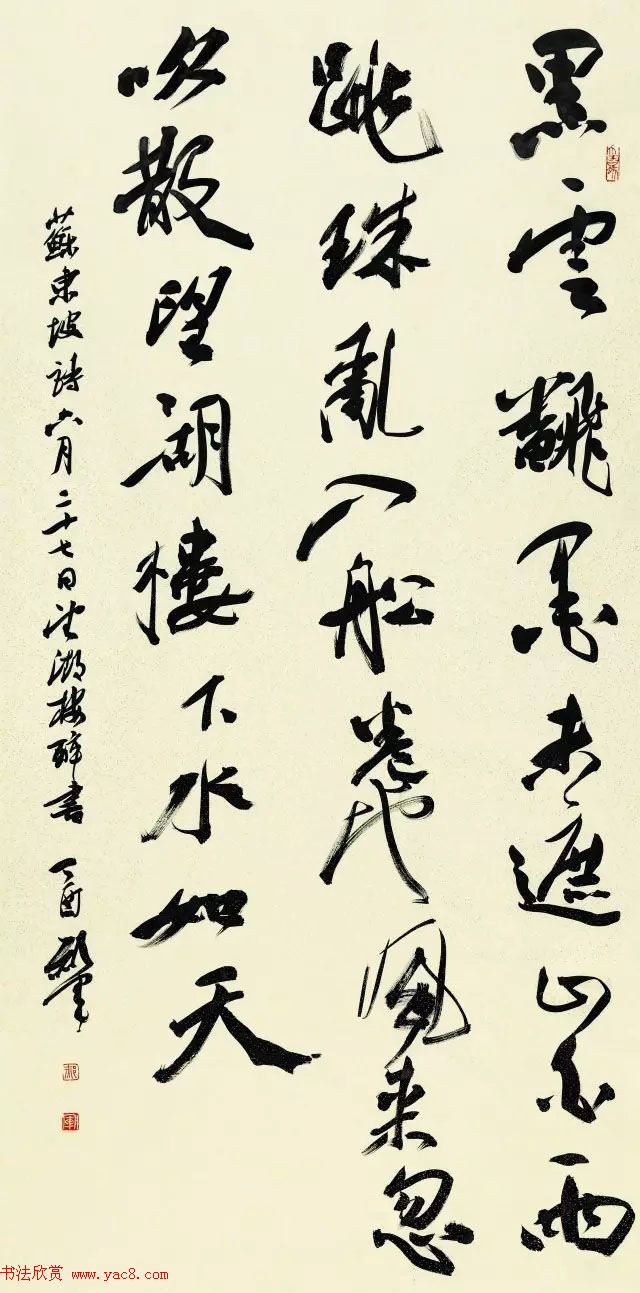 黑雲飜墨未遮山白雨
跳珠亂入船卷地風来忽
吹散望湖樓下水如天
蘇東坡詩六月二十七日望湖樓醉書 丁酉
书法欣赏 www.yac8.com